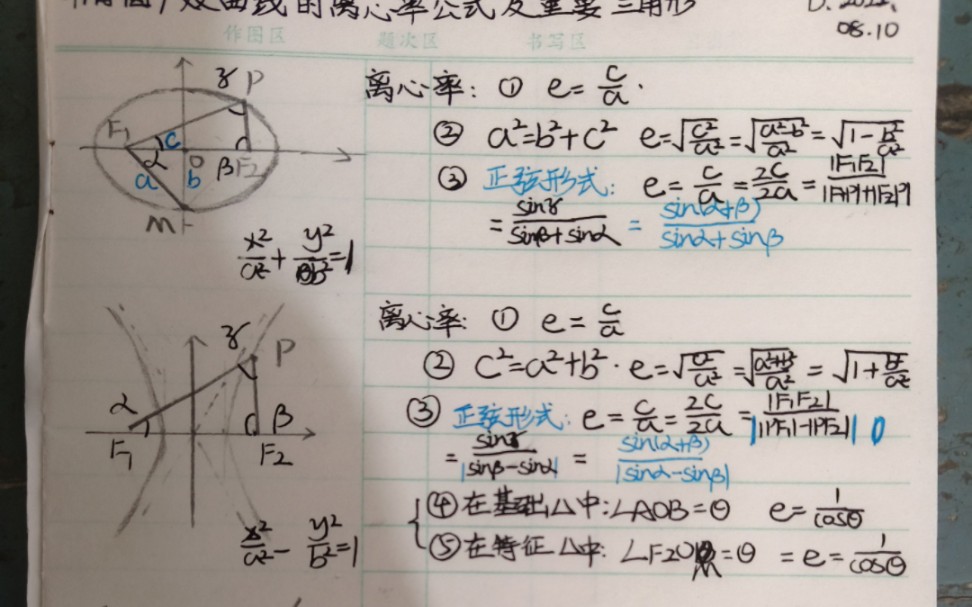 椭圆/双曲线的离心率公式及重要三角形
08.10
作图区 题次区 书写区
离心率: ① e=c/a.
② a²=b²+c² e=√(c²/a²)=√((a²-b²)/a²)=√(1-b²/a²)
③ 正弦形式: e=c/a=2c/2a=|F₁F₂|/(|PF₁|+|PF₂|)
=sinγ/(sinβ+sinα)=sin(α+β)/(sinα+sinβ)
γ P
F₁ c α O β F₂
a b
M
x²/a²+y²/b²=1
离心率: ① e=c/a
② c²=a²+b². e=√(c²/a²)=√((a²+b²)/a²)=√(1+b²/a²)
③ 正弦形式: e=c/a=2c/2a=|F₁F₂|/||PF₁|-|PF₂||
=sinγ/|sinβ-sinα|=sin(α+β)/|sinα-sinβ|
④在基础△中:∠AOB=θ e=1/cosθ
⑤在特征△中: ∠F₂OM=θ =e=1/cosθ
γ P
α β
F₁ F₂
x²/a²-y²/b²=1